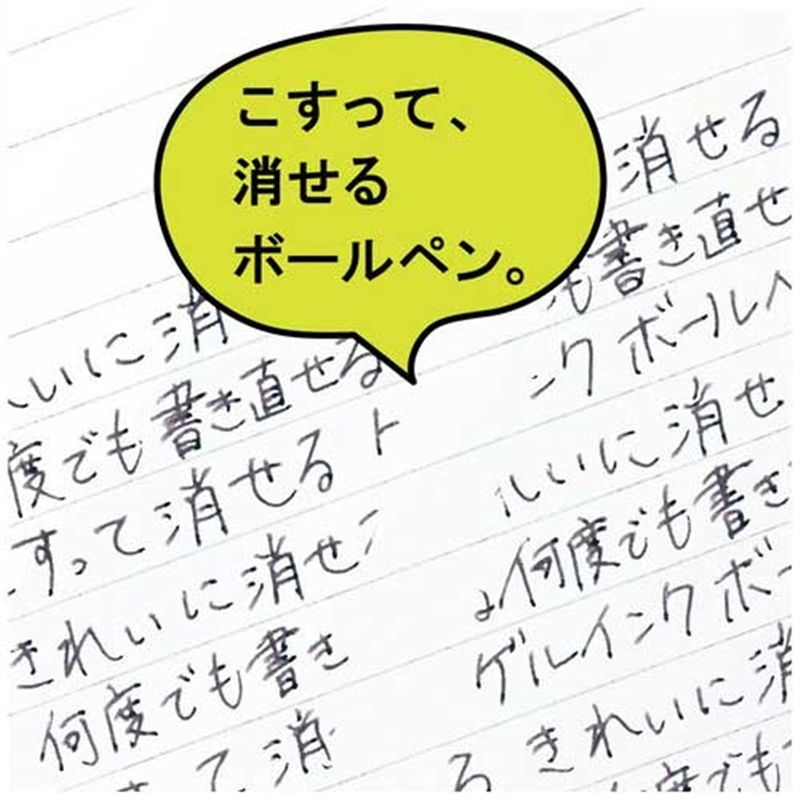 こすって、
消せる
ボールペン。
消せる
も書き直せ
ンク ボールペ
いに消
度でも書き直せる
すって消せる ト
きれいに消せ
何度でも書き
て消
いに消せ
何度でも書き
ゲルインクボー
る きれいに消
度でも